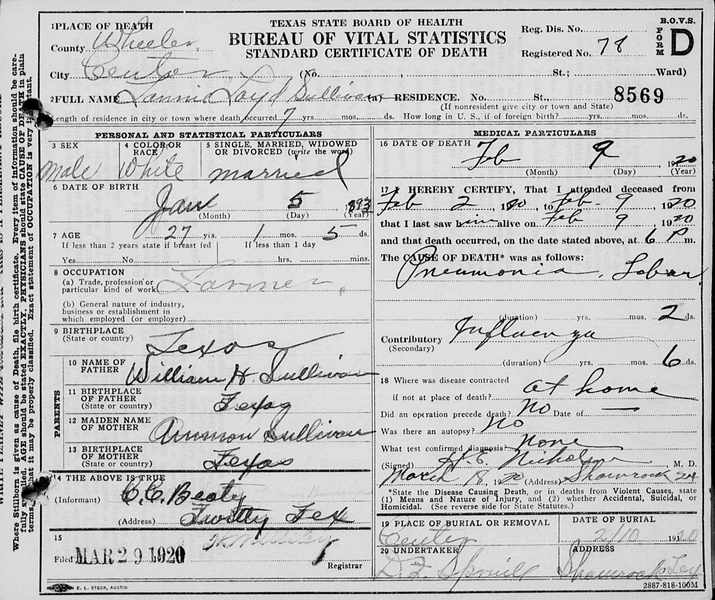 TEXAS STATE BOARD OF HEALTH
BUREAU OF VITAL STATISTICS
STANDARD CERTIFICATE OF DEATH
Reg. Dis. No.
Registered No. 78
B.O.V.S.
FORM
D
1 PLACE OF DEATH
County Wheeler
City Center (No. St.; Ward)
2 FULL NAME Lloyd Sullivan (a) RESIDENCE. No. St., 8569
(If nonresident give city or town and State)
Length of residence in city or town where death occurred 7 yrs. mos. ds. How long in U. S., if of foreign birth? yrs. mos. ds.
PERSONAL AND STATISTICAL PARTICULARS
3 SEX
male
4 COLOR OR RACE
White
5 SINGLE, MARRIED, WIDOWED OR DIVORCED (write the word)
married
6 DATE OF BIRTH
Jan 5 1893
(Month) (Day) (Year)
7 AGE
27 yrs. 1 mos. 5 ds.
If less than 2 years state if breast fed
If less than 1 day
Yes No hrs. mins.
8 OCCUPATION
(a) Trade, profession or particular kind of work Farmer
(b) General nature of industry, business or establishment in which employed (or employer)
9 BIRTHPLACE
(State or country) Texas
PARENTS
10 NAME OF FATHER William H. Sullivan
11 BIRTHPLACE OF FATHER
(State or country) Texas
12 MAIDEN NAME OF MOTHER Sullivan
13 BIRTHPLACE OF MOTHER
(State or country) Texas
14 THE ABOVE IS TRUE
(Informant) C.C. Beaty
(Address) Twitty Tex
15
Filed MAR 29 1920
Registrar
MEDICAL PARTICULARS
16 DATE OF DEATH
Feb 9 1920
(Month) (Day) (Year)
17 I HEREBY CERTIFY, That I attended deceased from
Feb 2 1920 to Feb 9 1920
that I last saw him alive on Feb 9 1920
and that death occurred, on the date stated above, at 6 P m.
The CAUSE OF DEATH* was as follows:
Pneumonia, Lobar
(duration) yrs. mos. 2 ds.
Contributory Influenza
(Secondary)
(duration) yrs. mos. 6 ds.
18 Where was disease contracted
if not at place of death? at home
Did an operation precede death? No Date of —
Was there an autopsy? No
What test confirmed diagnosis? None
(Signed) H. E. Nicholson M. D.
March 1920 (Address) Shamrock
*State the Disease Causing Death, or in deaths from Violent Causes, state (1) Means and Nature of Injury, and (2) whether Accidental, Suicidal, or Homicidal. (See reverse side for State Statutes).
19 PLACE OF BURIAL OR REMOVAL
Center
DATE OF BURIAL
2/10 1920
20 UNDERTAKER
ADDRESS
Shamrock Tex
E. L. STECK, AUSTIN
2887-818-100M